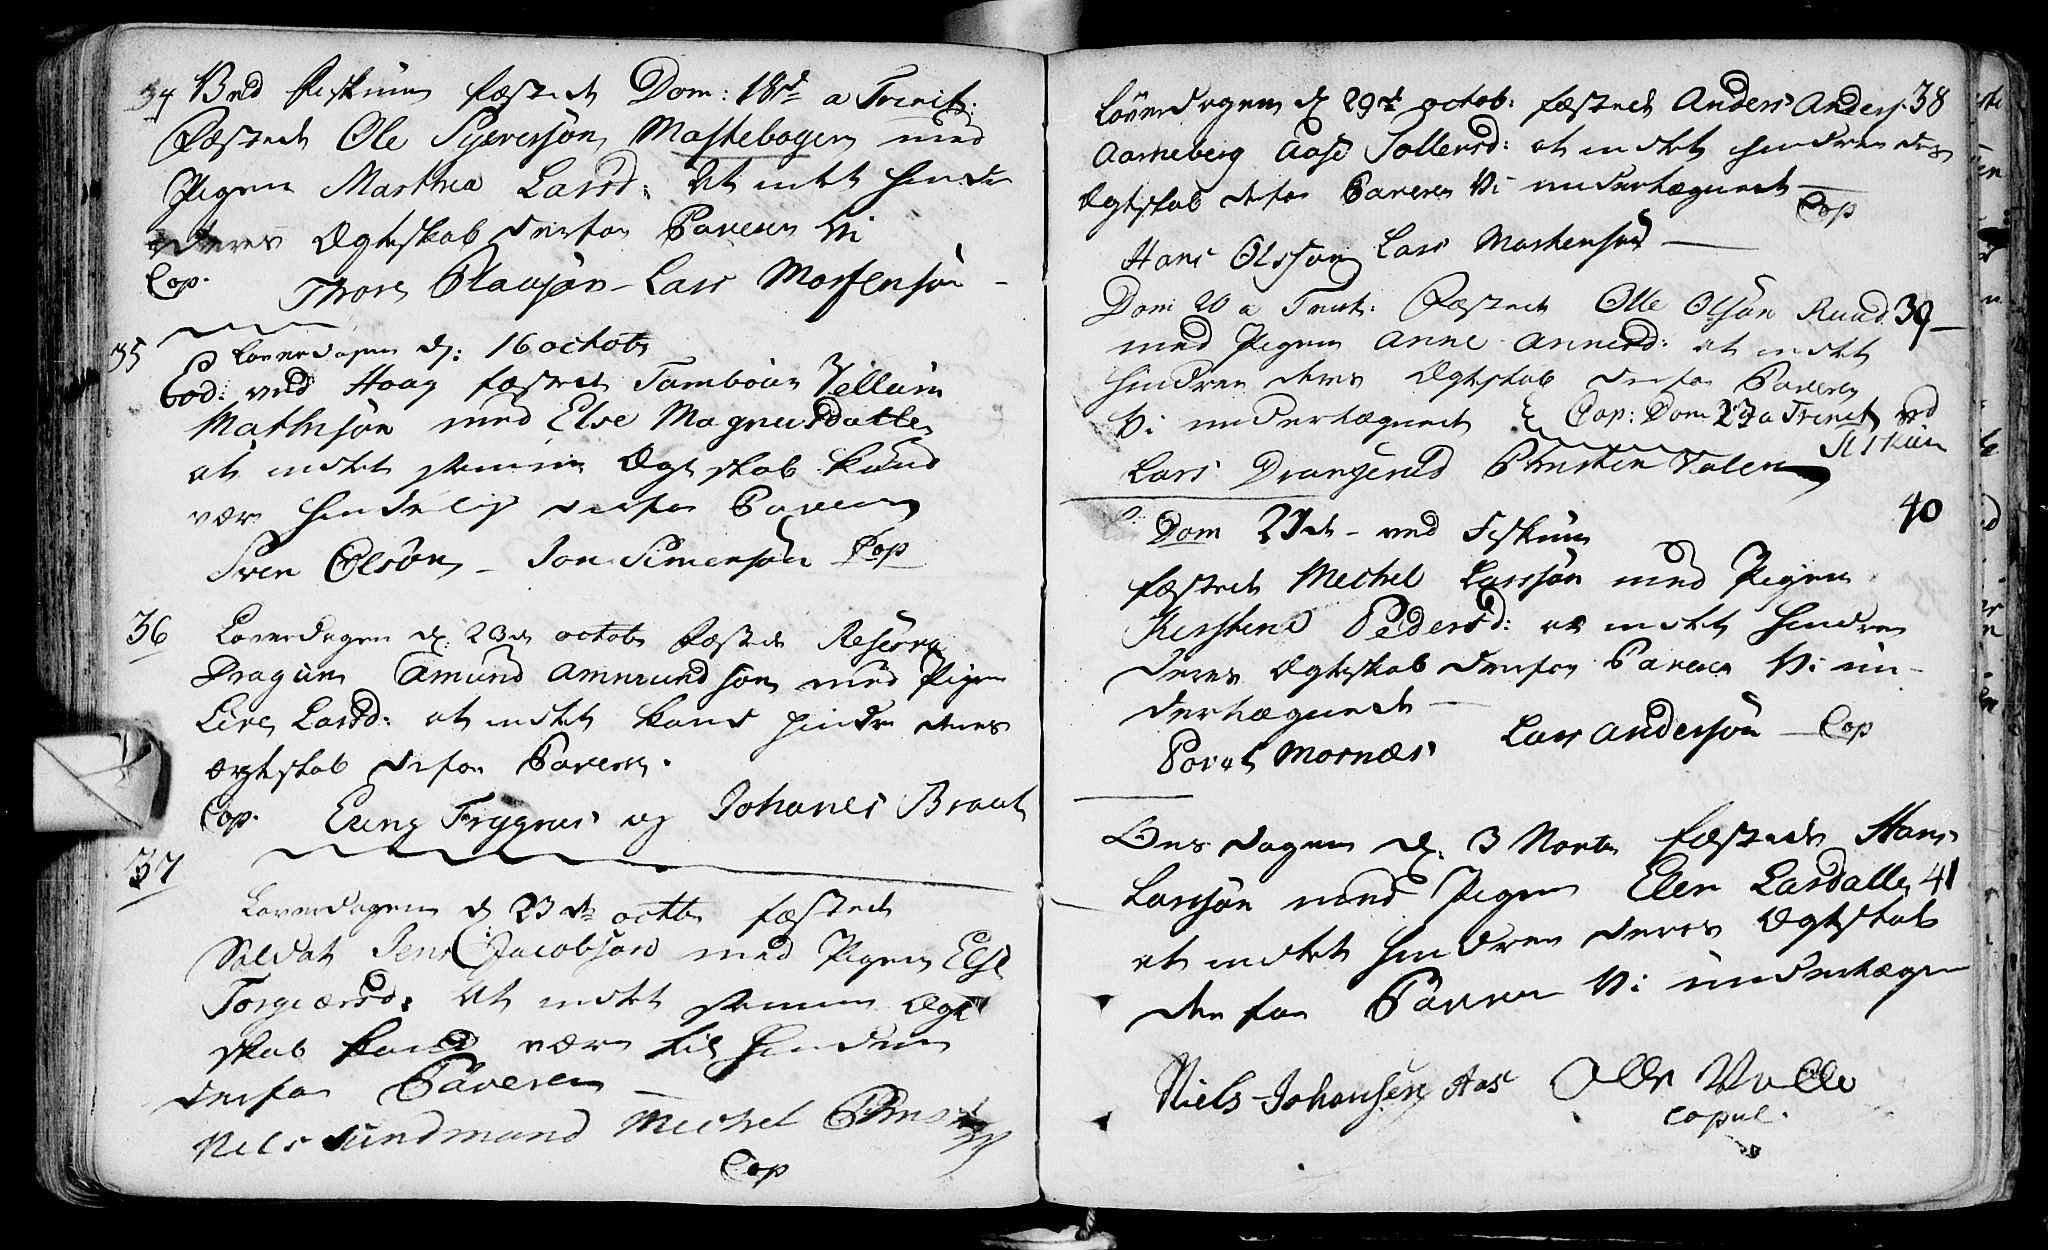 34 Ved Fiskum fæstede Dom: 18de a Trinit:
Fæstede Ole Syversøn Mastebogen med
Pigen Marthea Larsd: At intet hindrer
deres Ægteskab derfor Caverer Vi
Cop. Thore Olausøn - Lars Mortensøn -
35 Løverdagen d: 16 octob
Eod: ved Houg fæstede Tambour Vellum
Mathisøn med Else Magnusdatter
at intet samme Ægteskab kand
være hinderlig derfor Caverer
Sven Olsøn - Jon Simensøn Cop
36 Løverdagen d. 23de octob fæstede Reserve
Dragun Amund Ammundsøn med Pigen
Live Larsd: at intet kand hindre deres
ægteskab derfor Caverer.
Cop. Eueng Frygnes og Johanes Braat
37
Løverdagen d 23de octb fæstede
Soldat Jens Jacobsøn med Pigen Else
Torgiærsd: At intet samme Ægte
skab kand være til hinder
derfor Caverer
Nels Sundmand Michel
Cop
Løverdagen d. 29de octob: fæstede Anders Anders: 38
Aarneberg Aase Tollersd: at intet hindrer deres
Ægteskab derfor Caverer Vi underteignede
Cop
Hans Olsson Lars Mortensøn
Dom 20 a Trinit: Fæstede Olle Olsøn Ruud 39
med Pigen Anne Annersd: at intet
hindrer deres Ægteskab derfor Caverer
Vi underteignede Cop: Dom 23 a Trinit ved
Fiskum
Lars Drangerud Christen Valen
40
Dom 21de - ved Fiskum
fæstede Michel Larssøn med Pigen
Kirstine Pedersd: at intet hindrer
deres Ægteskab derfor Caverer Vi un-
derteignede
Povel Mornæs Lars Andersøn - Cop
Onsdagen d. 3 Novb fæstede Hans
Larsøn med Pigen Elen Larsdatter 41
at intet hindrer deres Ægteskab
derfor Caverer Vi underteigne
Niels Johansen Aas Olle Wolle
Copul.